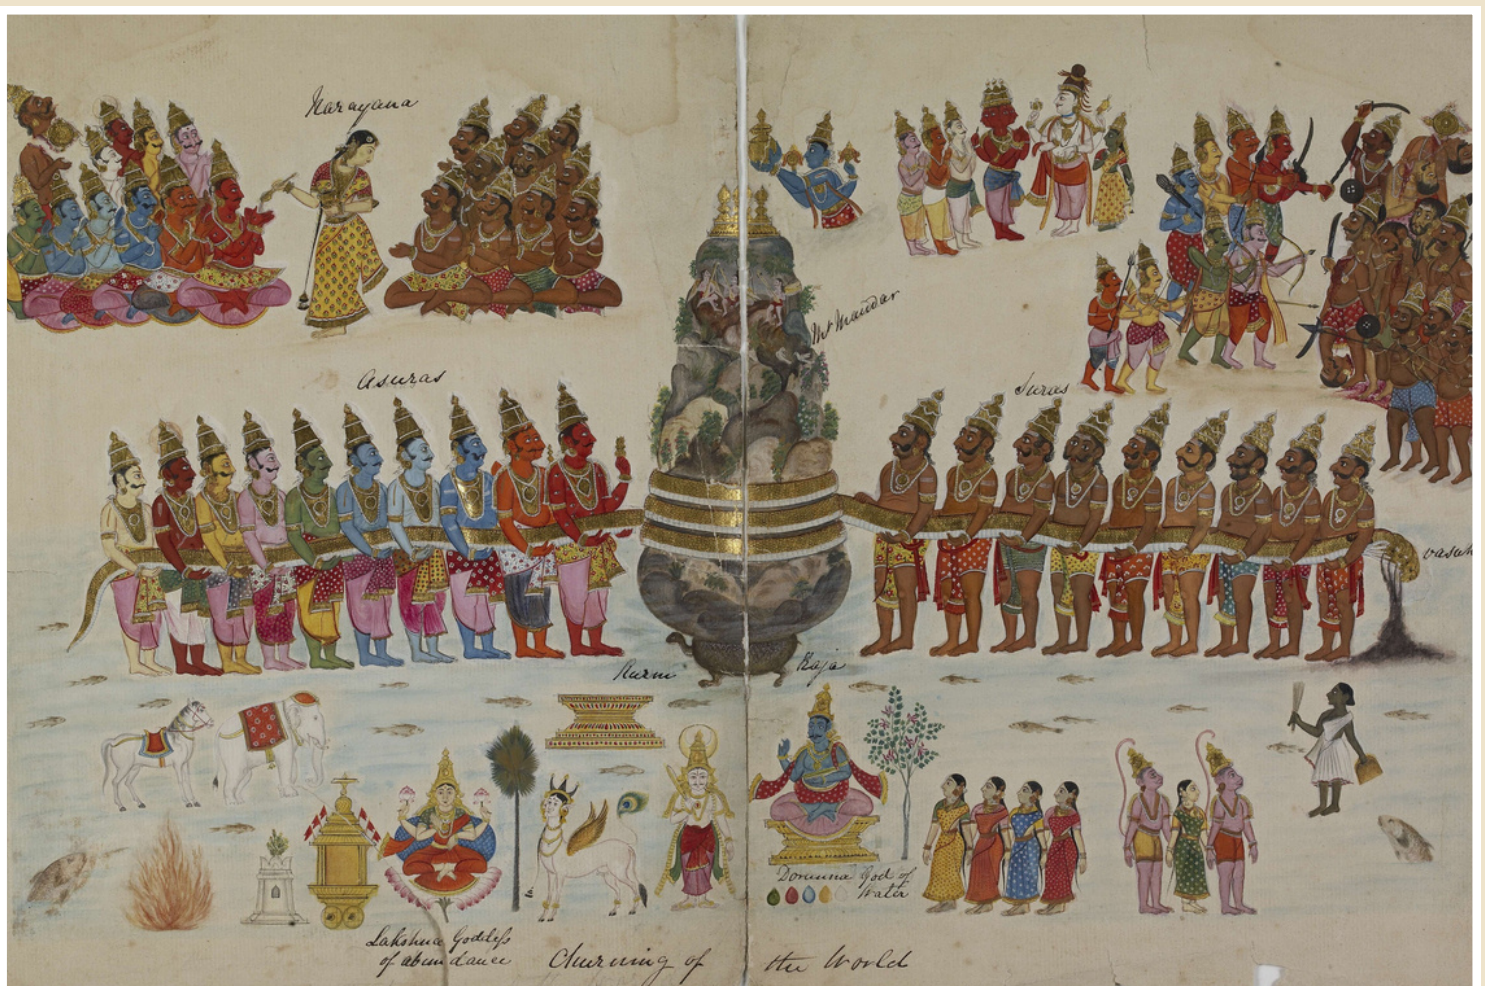 Narayana
Mt Mandar
Asuras
Suras
Vasuk
Kurm Raja
Dorunna God of
Water
Lakshme Goddess
of abundance
Churning of the World